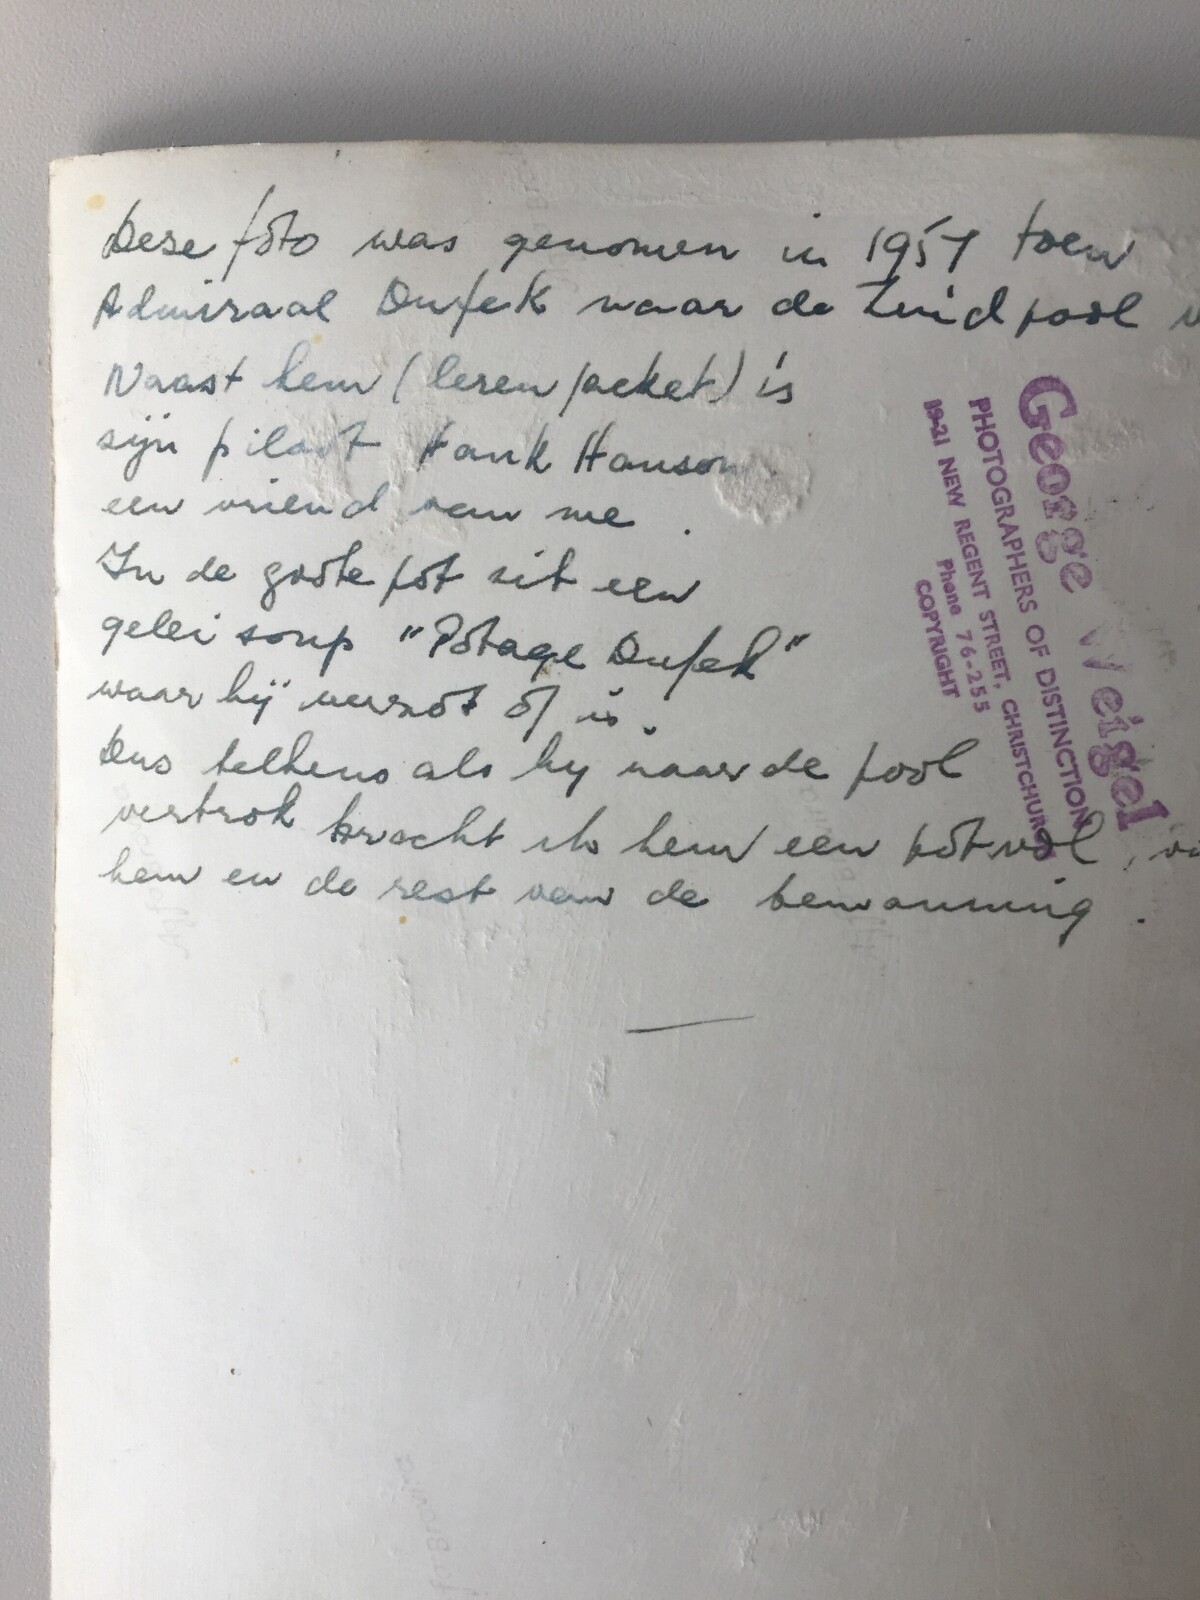 Deze foto was genomen in 1957 toen
Admiraal Dufek naar de Zuidpool
Naast hem (leren jacket) is
zijn piloot Hank Hanson
een vriend van me.
In de grote pot zit een
gelei soup "Potage Dufek"
waar hij verzot óf is.
Dus telkens als hy naar de pool
vertrok bracht ik hem een pot vol,
hem en de rest van de bemanning.
George Weigel
PHOTOGRAPHERS OF DISTINCTION
19-21 NEW REGENT STREET, CHRISTCHURCH
Phone 76-255
COPYRIGHT